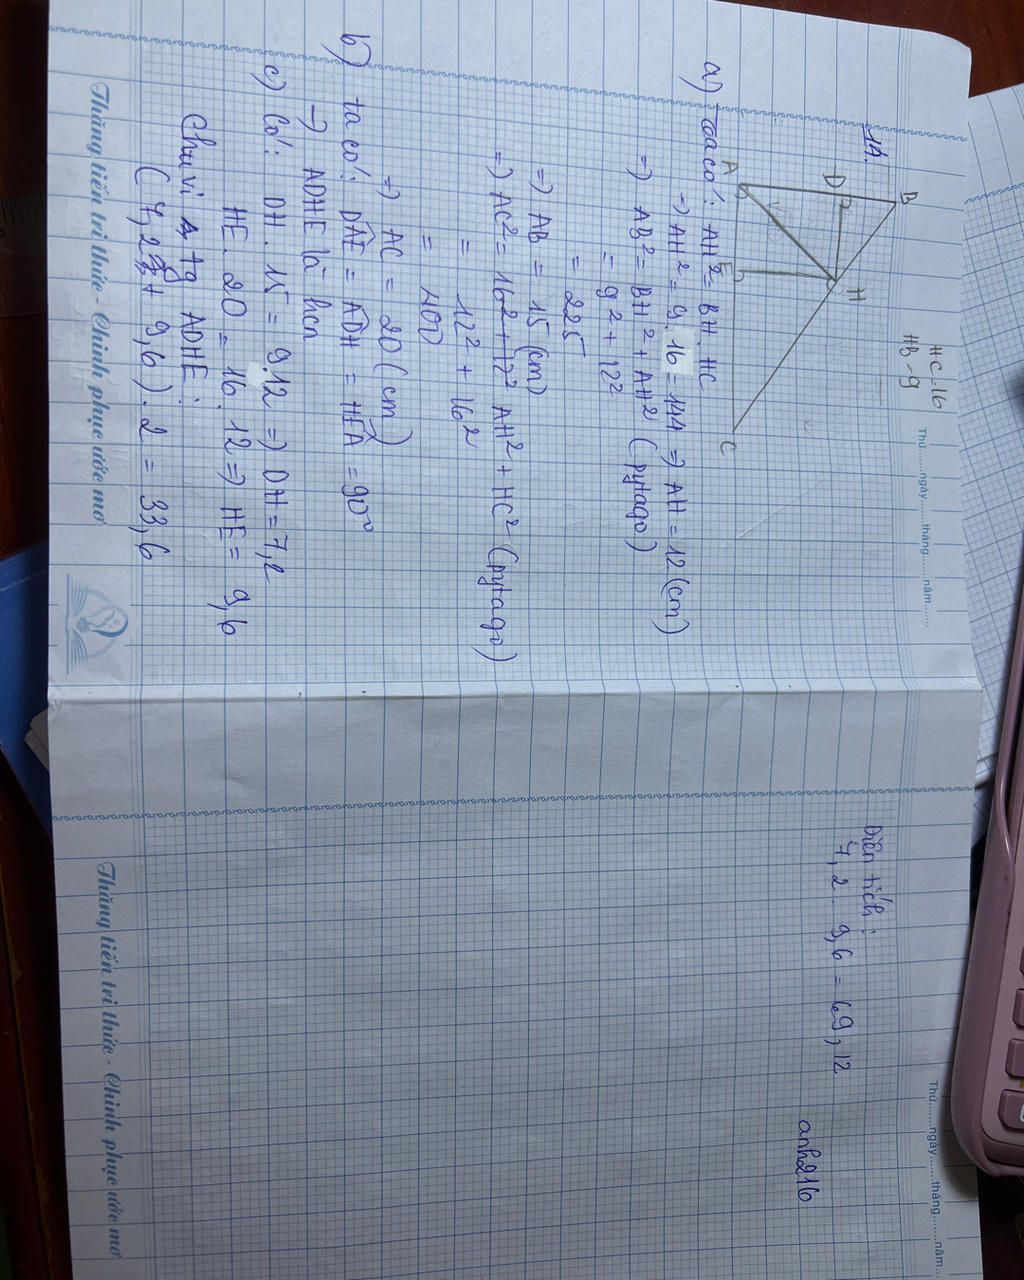 HC = 16
HB = 9
Thứ........ngày........tháng........năm........
14.
B
D
H
A
E
C
a) Ta có: AH² = BH. HC
=> AH² = 9. 16 = 144 => AH = 12 (cm)
=> AB² = BH² + AH² (pytago)
= 9² + 12²
= 225
=> AB = 15 (cm)
=> AC² = 16² + 12² AH² + HC² (pytago)
= 12² + 16²
= 400
=> AC = 20 (cm)
b) ta có: DAE = ADH = HEA = 90°
=> ADHE là hcn
c) Có: DH. 15 = 9.12 => DH = 7,2
HE. 20 = 16. 12 => HE = 9,6
Chu vi tg ADHE:
(7,2 + 9,6). 2 = 33,6
Thăng tiến tri thức - Chinh phục ước mơ
Thứ........ngày........tháng........năm........
Diện tích:
7,2. 9,6 = 69,12
anh216
Thăng tiến tri thức - Chinh phục ước mơ